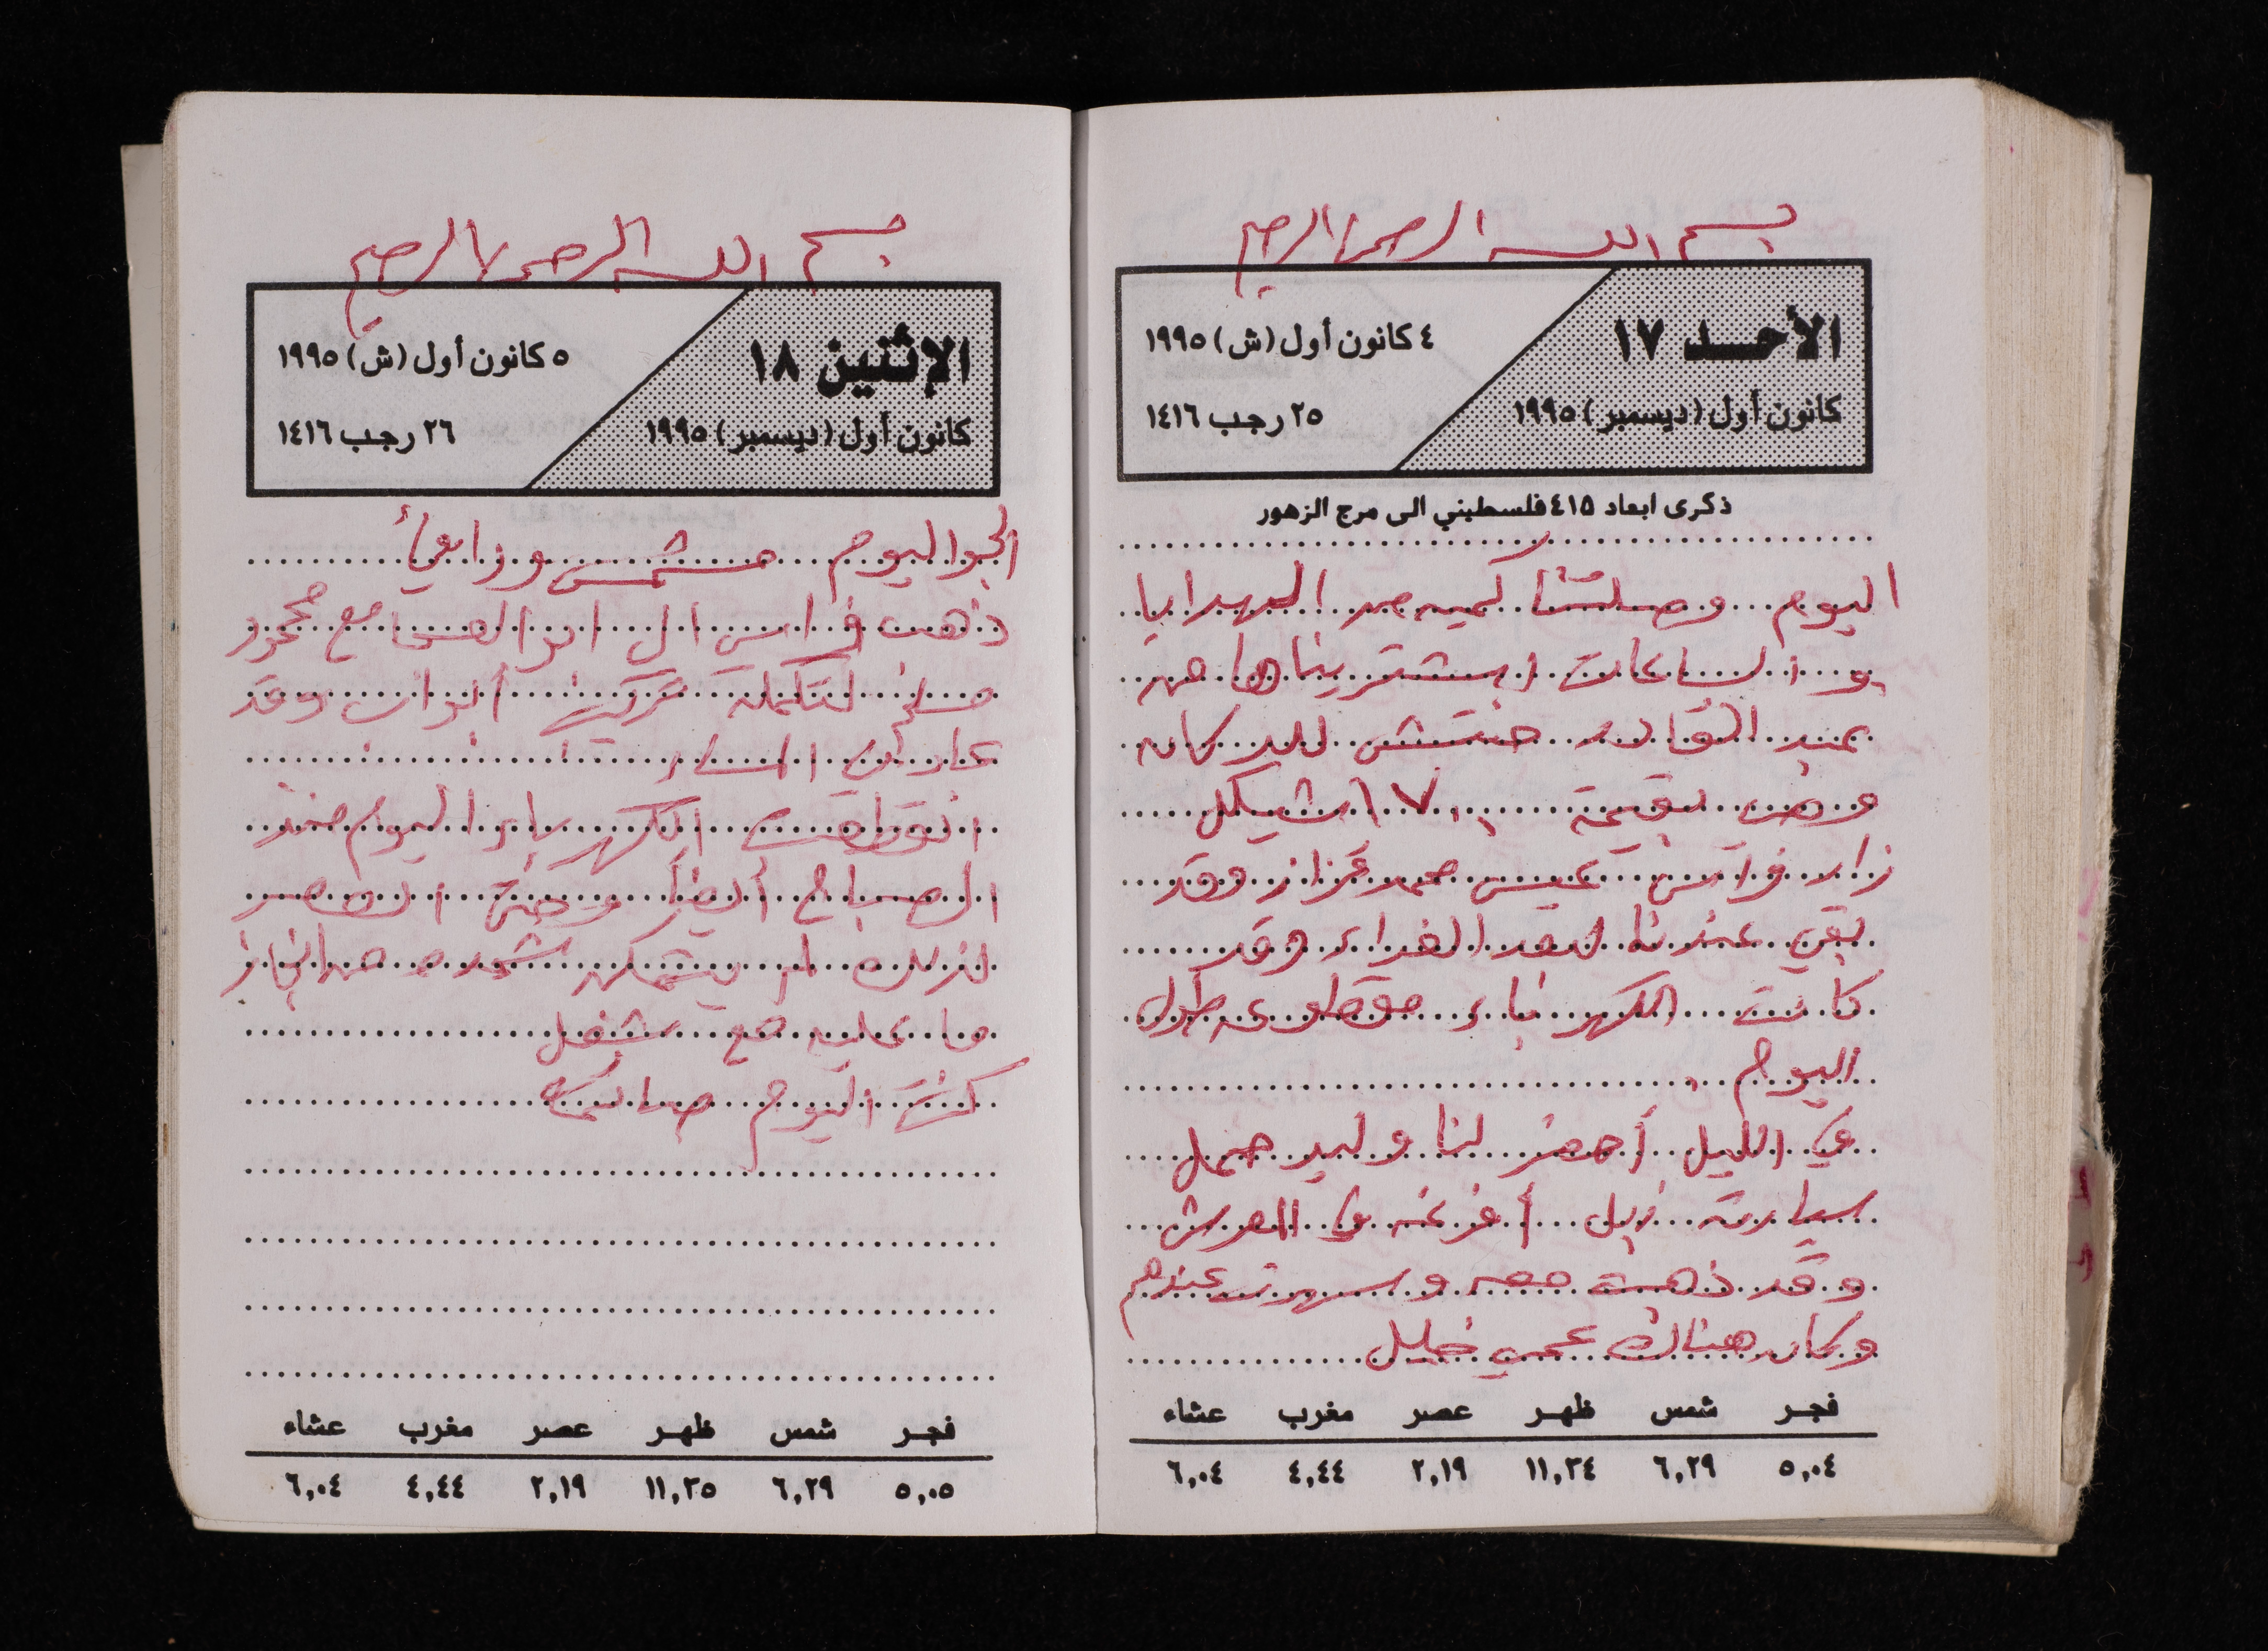 بسم الله الرحمن الرحيم
الأحد ١٧
٤ كانون أول (ش) ١٩٩٥
كانون أول (ديسمبر) ١٩٩٥
٢٥ رجب ١٤١٦
ذكرى ابعاد ٤١٥ فلسطيني الى مرج الزهور
اليوم وصلتنا كميه من الهدايا
و الساعات اشتريناها من
عبد القادر حنتش للدكانه
وهن بقيمة ١٧٠٠ شيكل
زار فراس عيسى محمد قزاز وقد
بقي عندنا لبعد الغداء وقد
كانت الكهرباء مقطوعه طول
اليوم
في الليل أحضر لنا وليد حمل
سيارته زبل أفرغه في العرش
وقد ذهبت معه وسهرت عندهم
وكان هناك عمي خليل
فجر شمس ظهر عصر مغرب عشاء
٥,٠٤ ٦,٢٩ ١١,٣٤ ٢,١٩ ٤,٤٤ ٦,٠٤
بسم الله الرحمن الرحيم
الإثنين ١٨
٥ كانون أول (ش) ١٩٩٥
كانون أول (ديسمبر) ١٩٩٥
٢٦ رجب ١٤١٦
الجو اليوم مشمس ودافئ
ذهب فراس ال ابو العسا مع محمود
مسلم لتكملة تركيب أبواب وقد
عاد في المساء
انقطعت الكهرباء اليوم منذ
الصباح أيضاً وحتى العصر
لذلك لم يتمكن من انجاز
ما عليه مع شغل
كنت اليوم صائمة
فجر شمس ظهر عصر مغرب عشاء
٥,٠٥ ٦,٢٩ ١١,٣٥ ٢,١٩ ٤,٤٤ ٦,٠٤